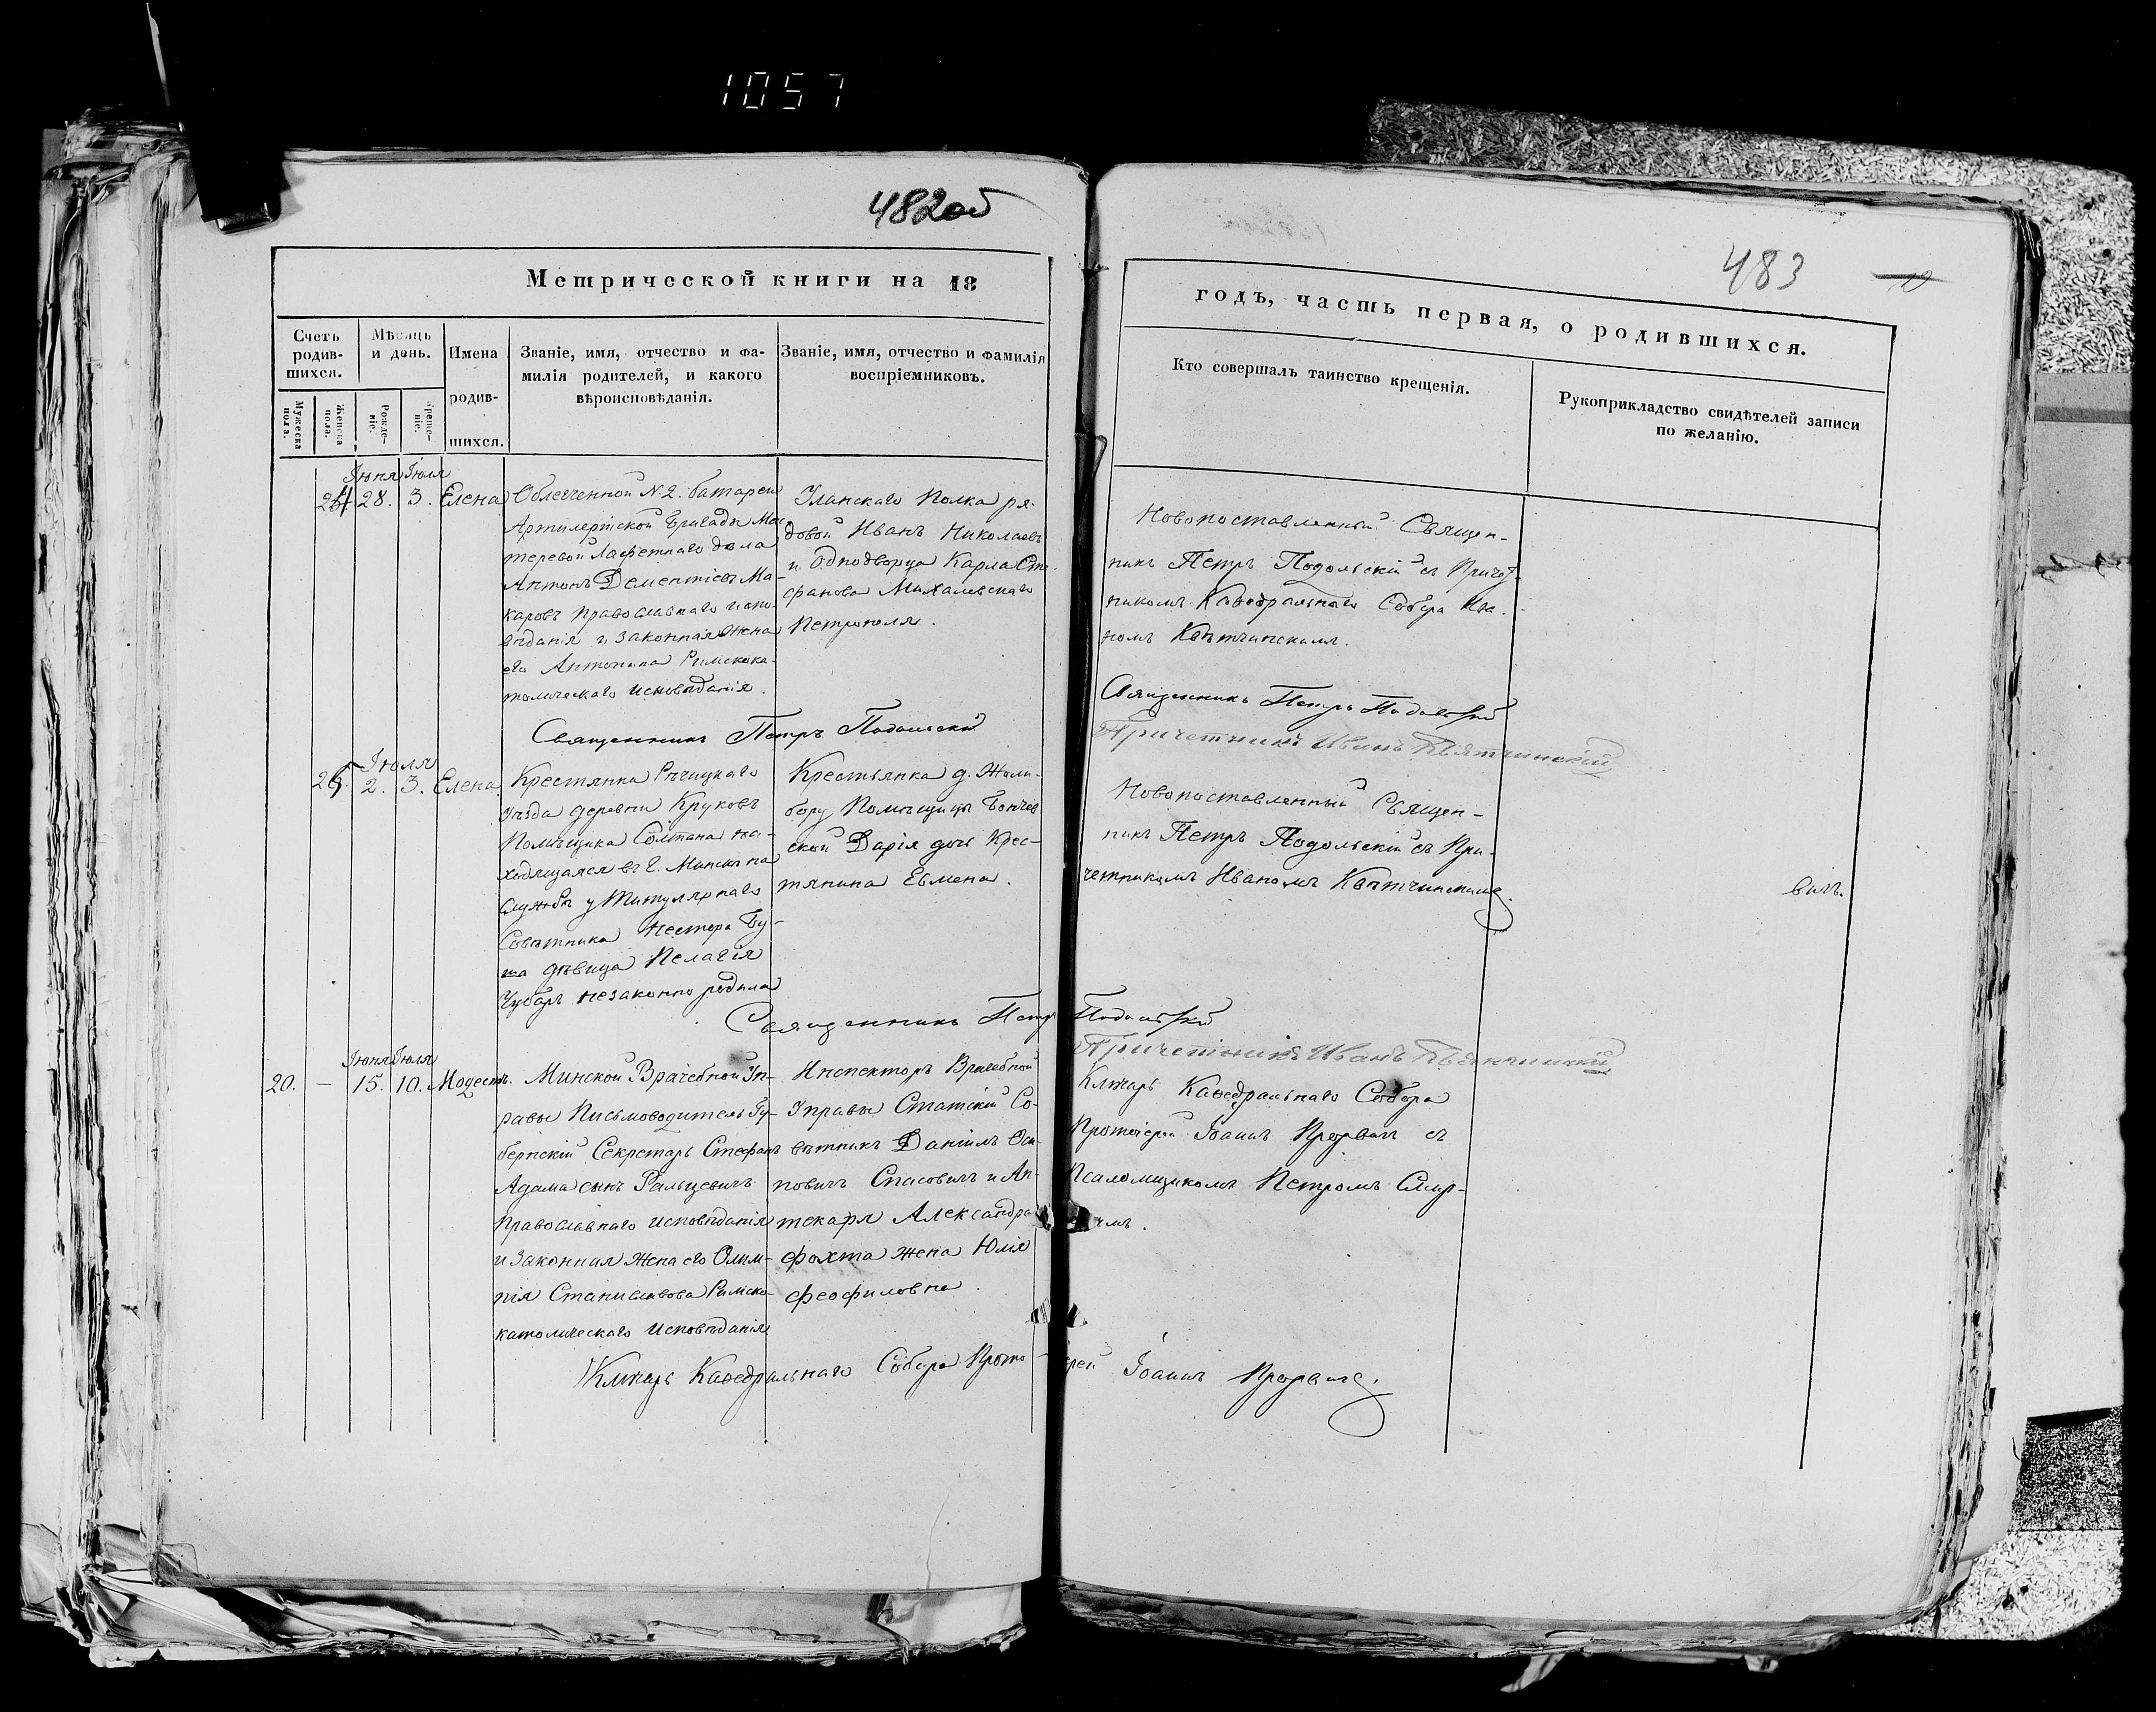 1057
482об
483
Метрической книги на 18
годъ, часть первая, о родившихся.
Счетъ родив-шихся.
Мужеска пола.
Женска пола.
Мѣсяцъ и день.
Рожде-ніе.
Креще-ніе.
Имена родив-шихся.
Званіе, имя, отчество и фа-
милія родителей, и какого
вѣроисповѣданія.
Званіе, имя, отчество и фамилія
воспріемниковъ.
Кто совершалъ таинство крещенія.
Рукоприкладство свидѣтелей записи
по желанію.
Іюня Іюля
24 28. 3. Елена
Облегченной N. 2. батареи
Артилерійской Бригады Мас-
теровой Лафетнаго дѣла
Антонъ Дементіевъ Ма-
каровъ православнаго испо-
вѣданія и законная жена
его Антонина Римскока-
толическаго исповѣданія.
Уланскаго Полка ря-
довой Иванъ Николаевъ
и однодворца Карла Сте-
фанова Михалевскаго
Петронеля.
Новопоставленный Священ-
никъ Петръ Подольскій съ Причет-
никомъ Каѳедральнаго Собора Ива-
номъ
Священникъ Петръ Подольскій
Священникъ Петръ Подольскій
Причетникъ Иванъ
Іюля
25. 2. 3. Елена
Крестянка Рѣчицкаго
уѣзда деревни Круковъ
Помѣщика Солтана на-
ходящаяся въ г. Минскѣ на
службѣ у Титулярнаго
Совѣтника Нестера Бу-
та дѣвица Пелагія
Чубаръ незаконно родила
Крестьянка д. Жоли-
бору Помѣщицы
ской Дарія дочь Крес-
тянина Евмена.
Новопоставленный Священ-
никъ Петръ Подольскій съ При-
четникомъ Иваномъ
вичъ.
Священникъ Петръ Подольскій
Причетникъ Иванъ
Іюня Іюля
20. — 15. 10. Модестъ.
Минской Врачебной Уп-
равы Письмоводитель Гу-
бернскій Секретарь Стефанъ
Адама сынъ Ральцевичъ
православнаго исповѣданія
и законная жена его Олим-
пія Станиславова Римско-
католическаго исповѣданія
Инспекторъ Врачебной
Управы Статскій Со-
вѣтникъ Даніилъ Оси-
повичъ Спасовичъ и Ап-
текаря Александра
Фохта жена Юлія
Феофиловна.
Ключарь Каѳедральнаго Собора
Протоіерей Іоаннъ съ
Псаломщикомъ Петромъ Смир-
Ключарь Каѳедральнаго Собора Прото-
іерей Іоаннъ